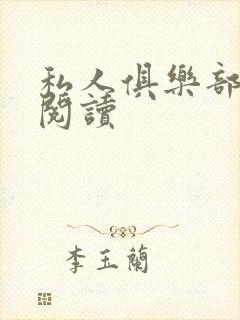 私人俱樂部
閱讀
李玉蘭